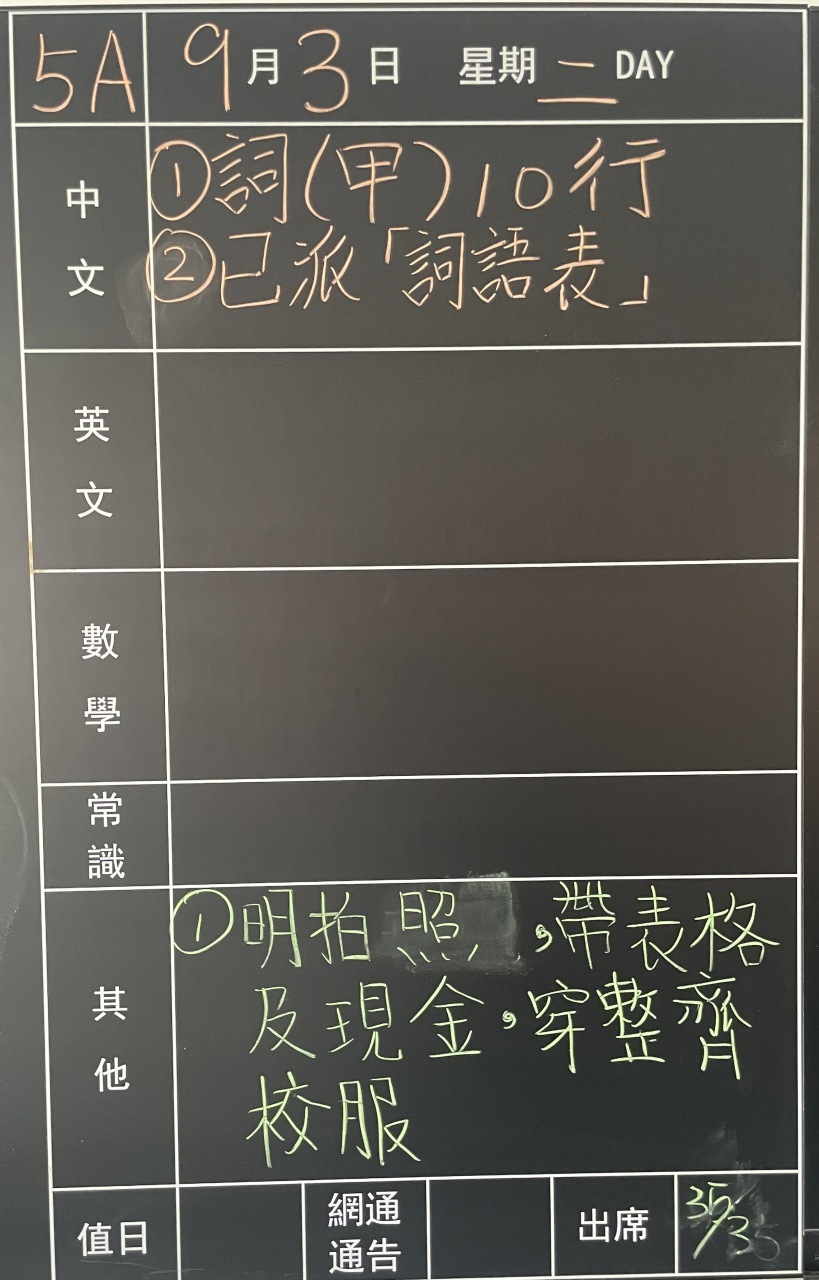 5A 9月3日 星期二DAY
中文
①詞(甲)10行
②已派「詞語表」
英文
數學
常識
其他
①明拍照,帶表格
及現金,穿整齊
校服
值日 網通通告 出席